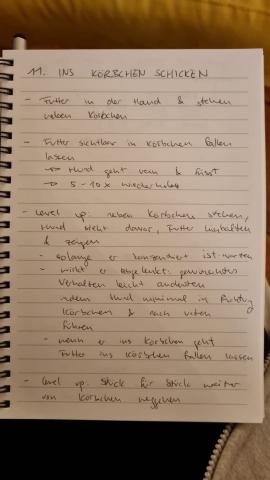 11. INS KÖRBCHEN SCHICKEN
- Futter in der Hand & stehen
neben Körbchen
- Futter sichtbar in Körbchen fallen
lassen
-> Hund geht rein & frisst
-> 5 - 10x wiederholen
- Level up: neben Körbchen stehen,
Hund steht davor, Futter hinhalten
& zeigen
- solange er konzentriert ist warten
- wirkt er abgelenkt: gewünschtes
Verhalten leicht andeuten
indem Hund minimal in Richtung
Körbchen & nach unten
führen
- wenn er ins Körbchen geht
Futter ins Körbchen fallen lassen
- Level up: Stück für Stück weiter
von Körbchen weggehen